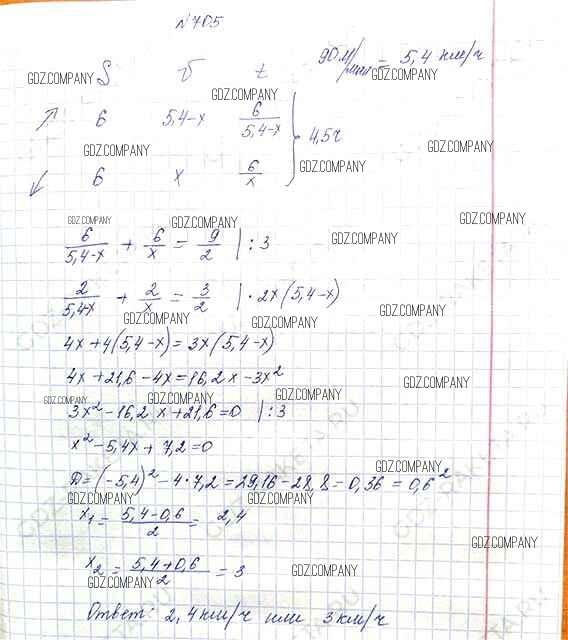 №705
90 м/мин = 5,4 км/ч
GDZ.COMPANY
S v t
GDZ.COMPANY
GDZ.COMPANY
↗ 6 5,4-x 6/(5,4-x)
} 4,5ч
GDZ.COMPANY
GDZ.COMPANY
GDZ.COMPANY
↙ 6 x 6/x
GDZ.COMPANY
GDZ.COMPANY
GDZ.COMPANY
6/(5,4-x) + 6/x = 9/2 | : 3
GDZ.COMPANY
2/(5,4x) + 2/x = 3/2 | · 2x(5,4-x)
GDZ.COMPANY
GDZ.COMPANY
GDZ.COMPANY
4x+4(5,4-x)=3x(5,4-x)
4x+21,6-4x=16,2x-3x²
GDZ.COMPANY
GDZ.COMPANY
GDZ.COMPANY
GDZ.COMPANY
3x²-16,2x+21,6=0 | : 3
x²-5,4x+7,2=0
GDZ.COMPANY
D=(-5,4)²-4·7,2=29,16-28,8=0,36=0,6²
GDZ.COMPANY
GDZ.COMPANY
x₁ = (5,4-0,6)/2 = 2,4
GDZ.COMPANY
x₂ = (5,4+0,6)/2 = 3
GDZ.COMPANY
GDZ.COMPANY
Ответ: 2,4км/ч или 3км/ч